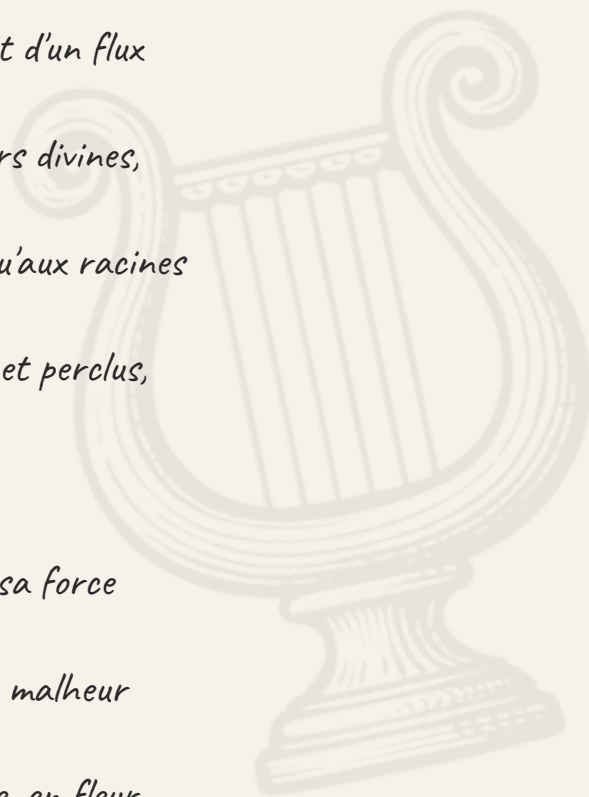 t d'un flux
rs divines,
u'aux racines
et perclus,
sa force
malheur
en fleur